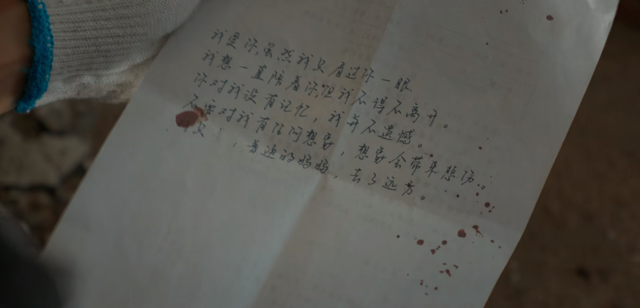 我是你,虽然我只看过你一眼
我想一直陪着你,但我不得不离开。
你对我没有记忆,我并不遗憾。
不要对我有任何想象,想象会带来悲伤。
,普通的妈妈,去了远方。